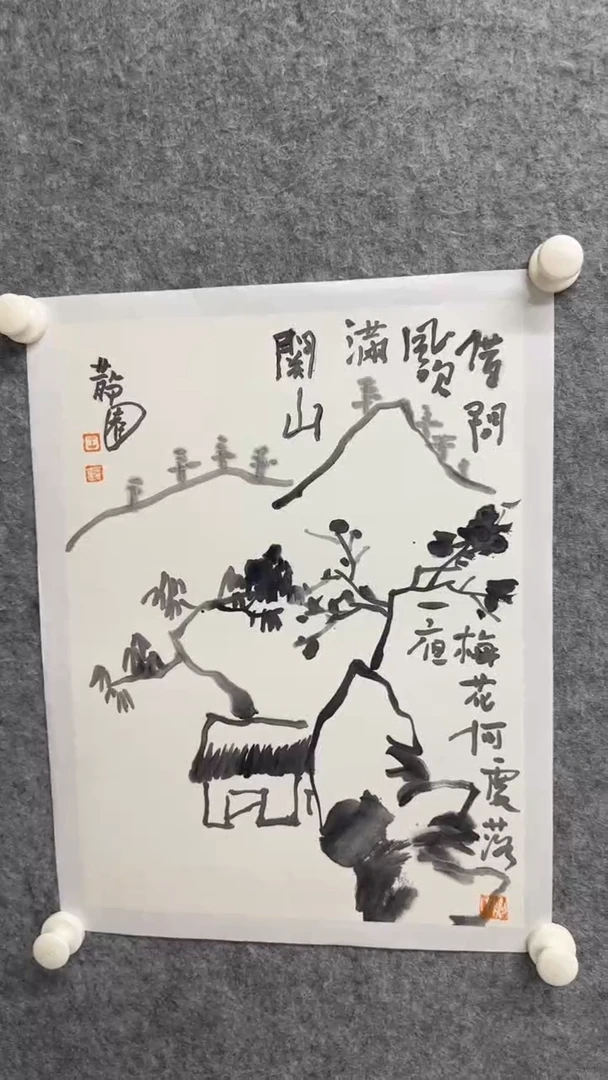 借問
梅花何處落
風吹
一夜
滿
關山